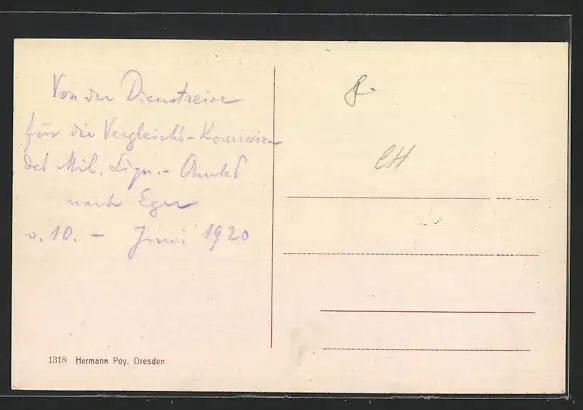 Von der Dienstreise
für die Vergleichs-Kommission
des Mil. Liqu.-Amtes
nach Eger
v. 10. - Juni 1920
8.-
CH
1318 Hermann Poy, Dresden